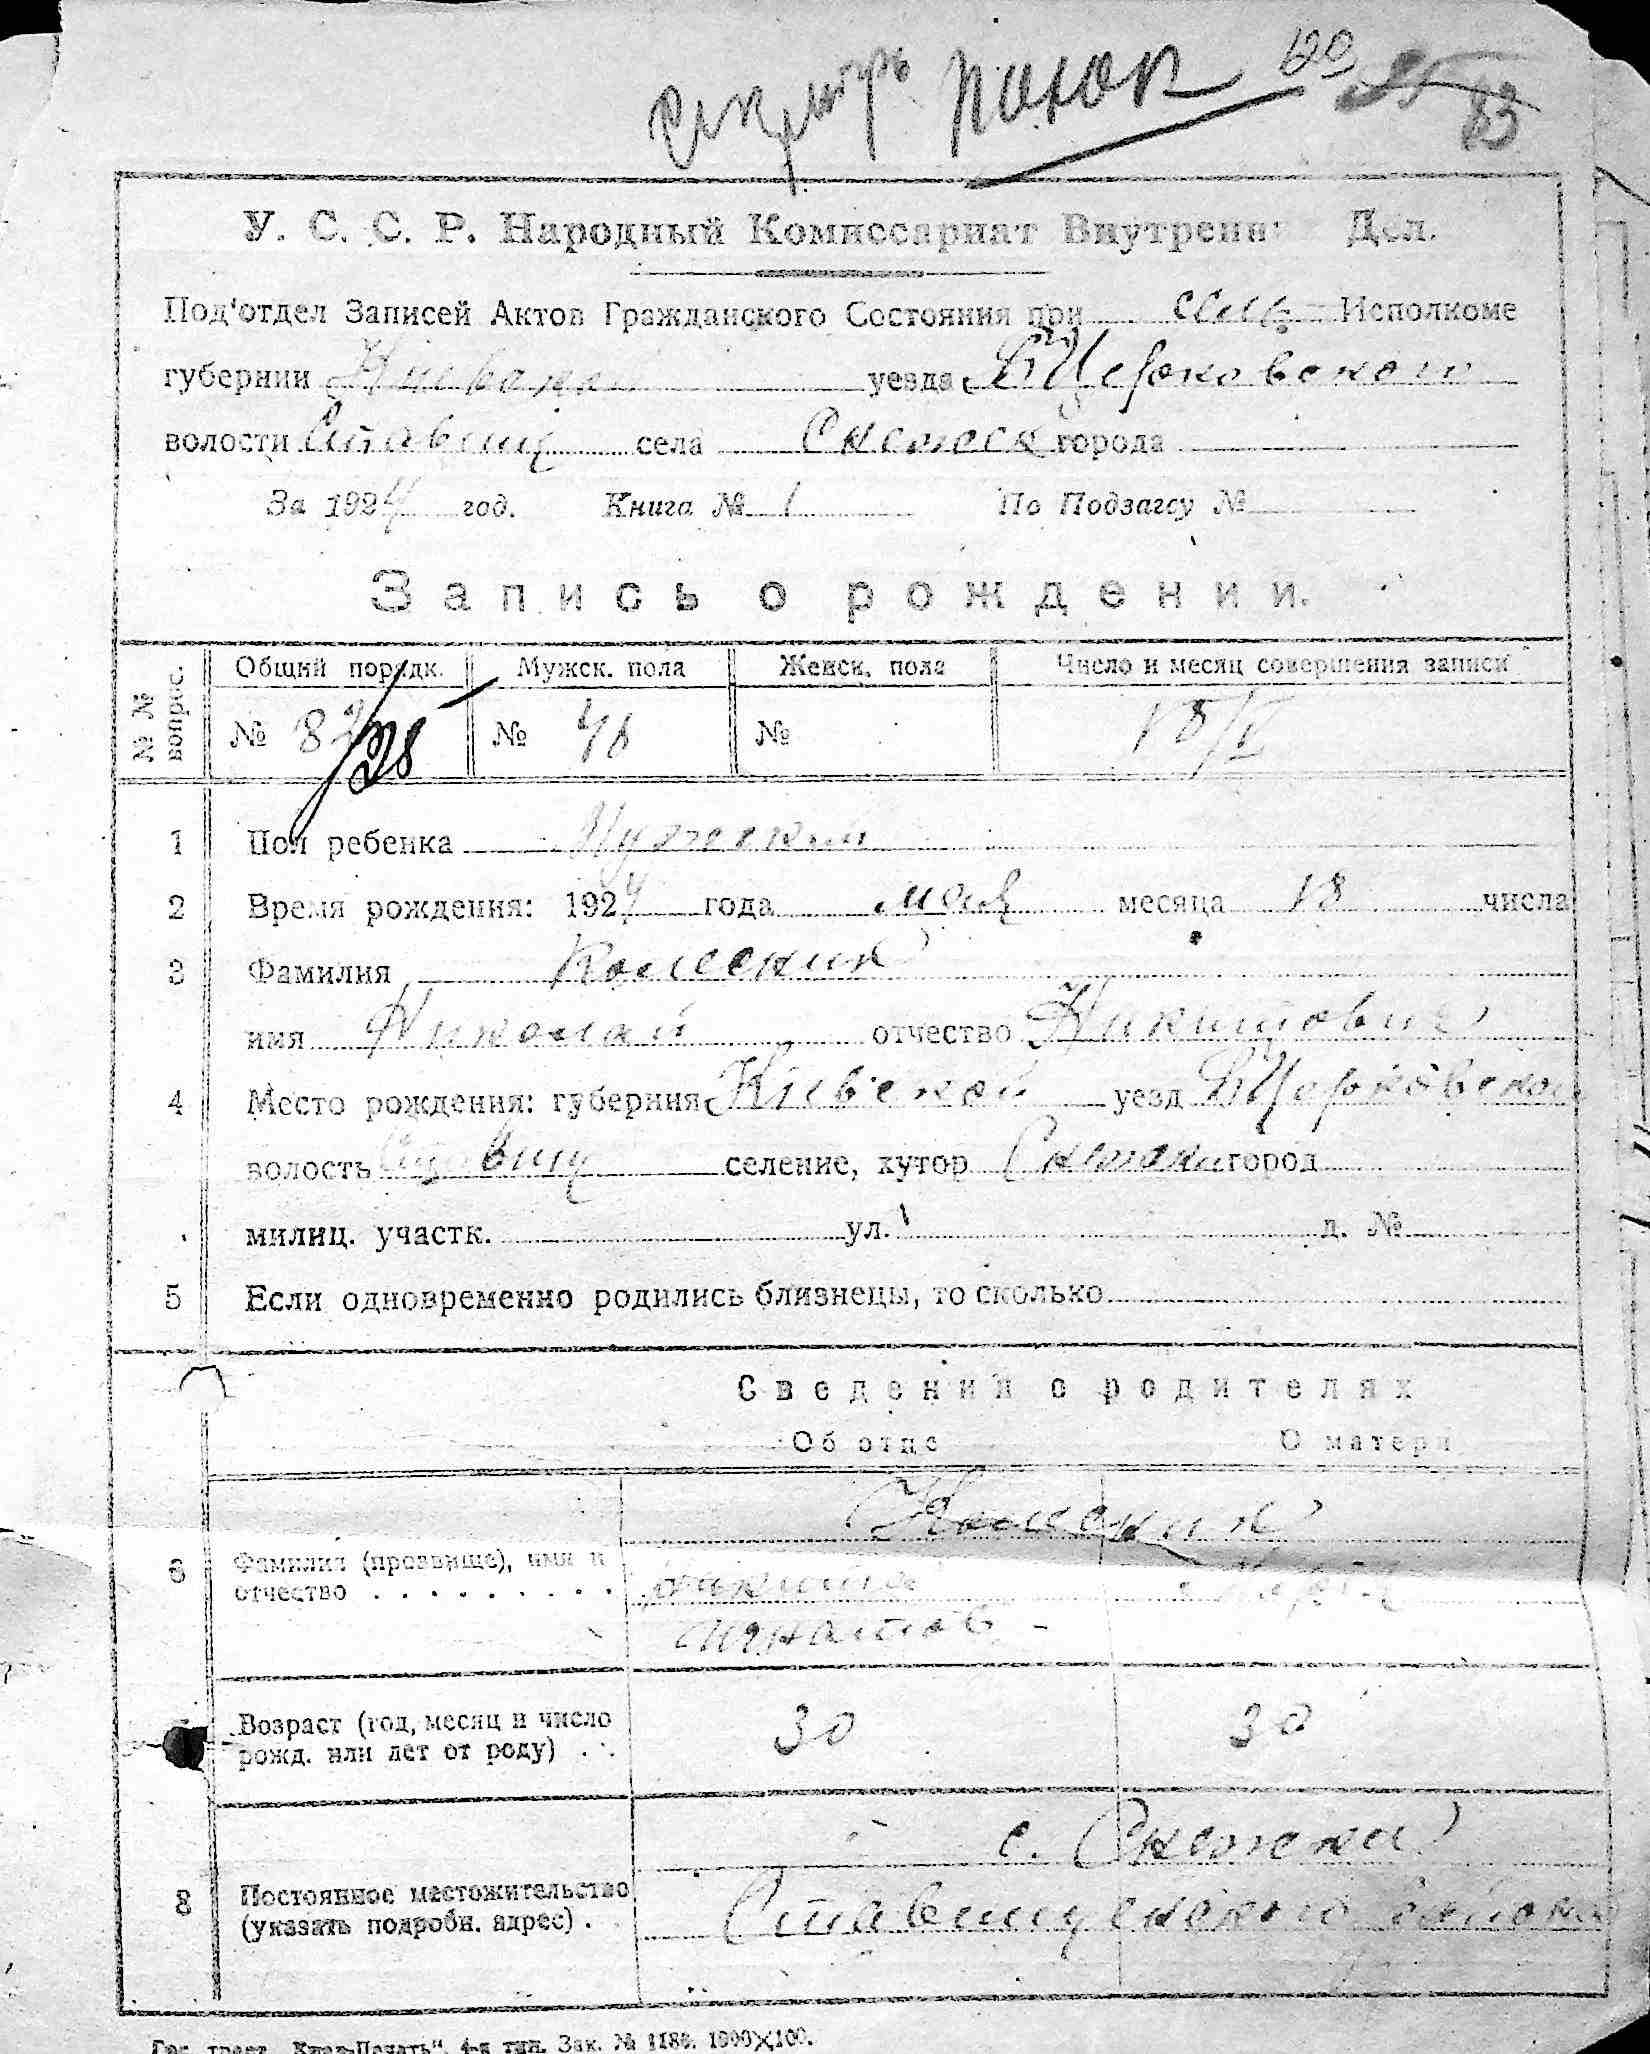 120
83
У. С. С. Р. Народный Комиссариат Внутренн Дел.
Под'отдел Записей Актов Гражданского Состояния при сель- Исполкоме
губернии Киевской уезда БЦерковского
волости Ставищ села города
За 1924 год. Книга № 1 По Подзагсу №
Запись о рождении.
№№ вопрос. Общий порядк. Мужск. пола Женск. пола Число и месяц совершения записи
№ 82/28 № 48 № 18/V
1 Пол ребенка Мужеский
2 Время рождения: 1924 года мая месяца 18 числа
3 Фамилия
имя Николай отчество Никитович
4 Место рождения: губерния Киевской уезд БЦерковской
волость Ставищ селение, хутор Снежки город
милиц. участк. ул. д. №
5 Если одновременно родились близнецы, то сколько
Сведения о родителях
Об отце О матери
6 Фамилия (прозвище), имя и
отчество . . . . . . . . .
Возраст (год, месяц и число
рожд. или лет от роду) . . 30 30
с. Снежки
8 Постоянное местожительство
(указать подробн. адрес) . Ставищенского района
Гос. трест „Киев-Печать“, 4-я тип. Зак. № 1186. 1000×100.